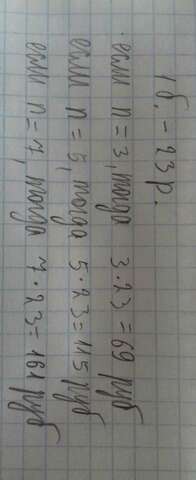 1б. – 23р.
если n = 3, тогда 3·23 = 69 руб
если n = 5, тогда 5·23 = 115 руб
если n = 7, тогда 7·23 = 161 руб